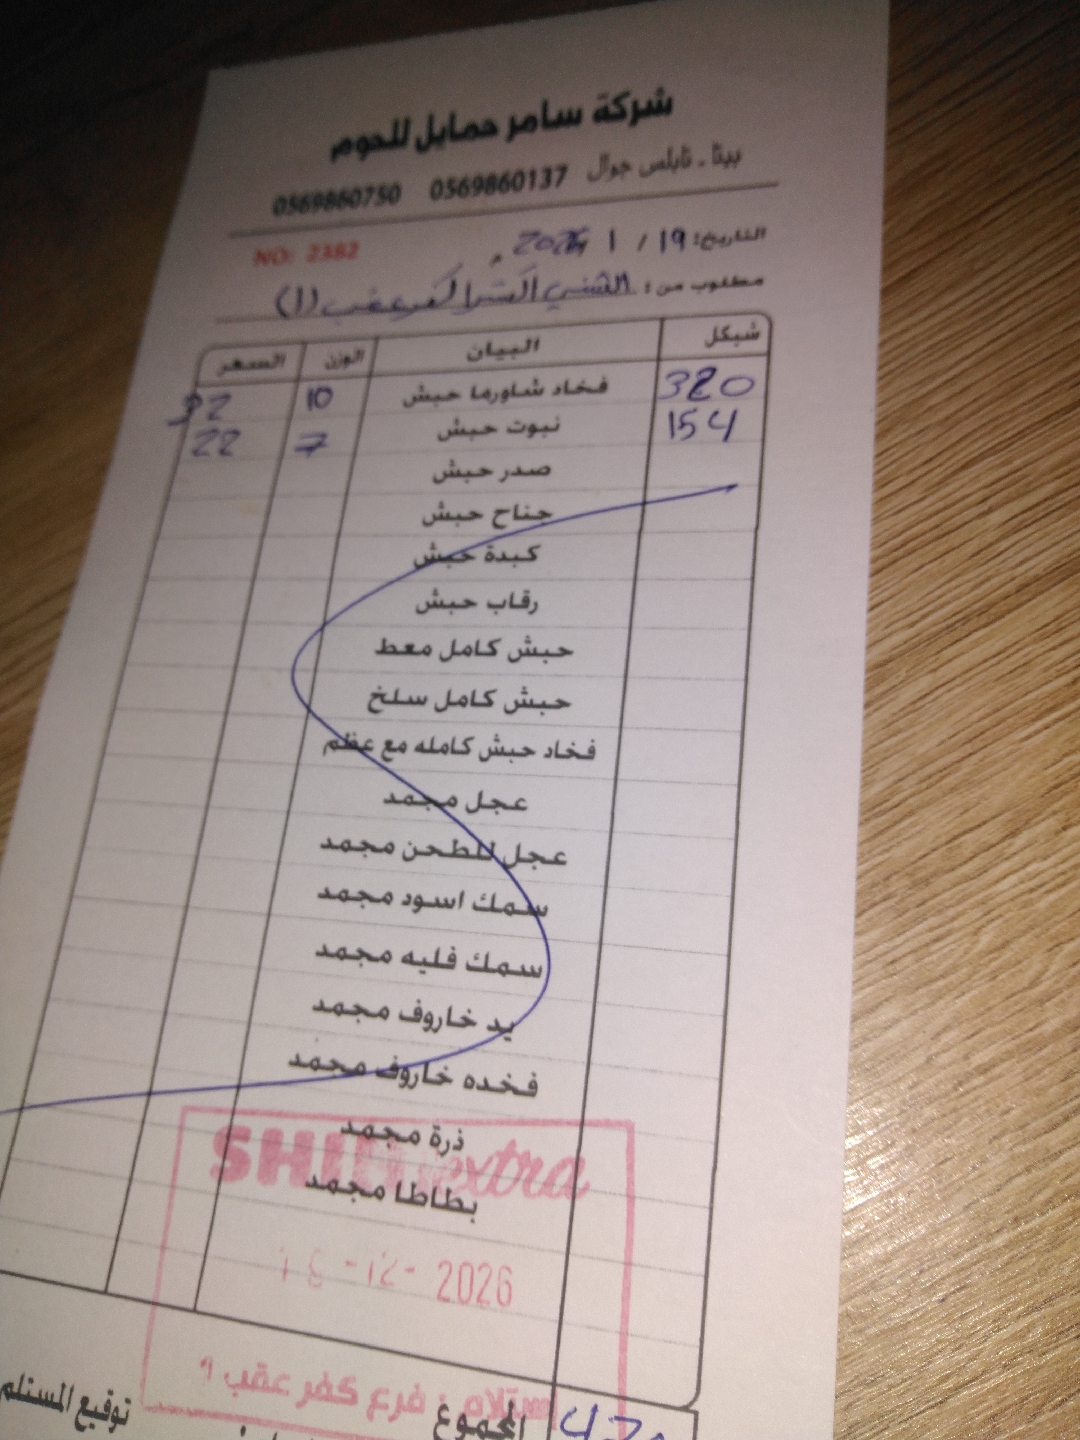 شركة سامر حمايل للحوم
بيتا - نابلس جوال 0569860137 0569860750
NO: 2382
التاريخ: 19 / 1 / م
مطلوب من: الشني اكسترا كفر عقب (1)
شيكل البيان الوزن السعر
320 فخاد شاورما حبش 10 32
154 نبوت حبش 7 22
صدر حبش
جناح حبش
كبدة حبش
رقاب حبش
حبش كامل معط
حبش كامل سلخ
فخاد حبش كامله مع عظم
عجل مجمد
عجل للطحن مجمد
سمك اسود مجمد
سمك فليه مجمد
يد خاروف مجمد
فخده خاروف مجمد
ذرة مجمد
بطاطا مجمد
extra
-12- 2026
فرع كفر عقب
المجموع
توقيع المستلم